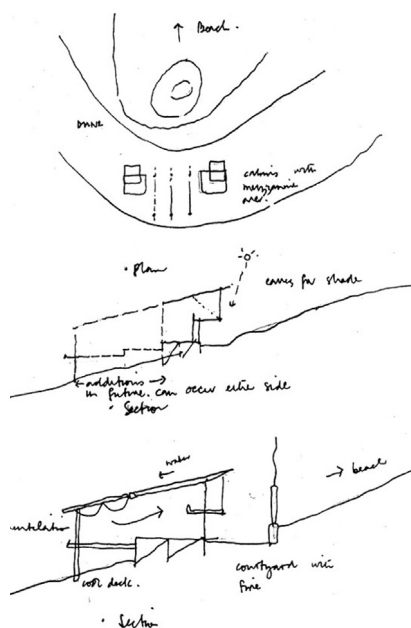 ↑ Beach.
DUNE
cabins with
mezzanine
area.
• Plan
eaves for shade
← additions →
in future. can occur either side
• Section
← water
→ beach
ventilation
cool deck.
courtyard with
fire
• Section